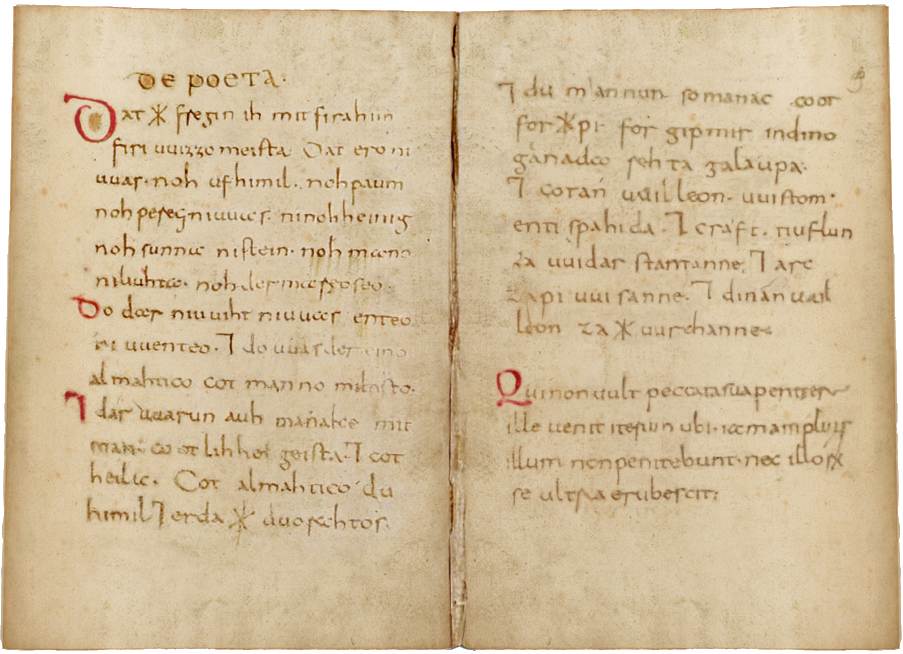 DE POETA·
Dat * fregin ih mit firahim
firi uuizzo meista· Dat ero ni
uuas· noh ufhimil· noh paum
noh pereg ni uuas· ni nohheinig
noh sunna ni stein· noh mano
ni liuhta· noh der mareo seo·
Do dar niuuiht ni uuas enteo
ni uuenteo· ⁊ do uuas der eino
almahtico cot manno miltisto·
⁊ dar uuarun auh manake mit
man· cootlihhe geista· ⁊ cot
heilac· Cot almahtico du
himil ⁊ erda * uuorahtos·
⁊ du mannun so manac coot
for *pi· for gipmir indino
ganada rehta galaupa·
⁊ cotan uuilleon· uuistom·
enti spahida· ⁊ craft· tiuflun
za uuidar stantanne· ⁊ arc
zapi uuisanne· ⁊ dinan uuil
leon za * uurchanne·
Qui non uult peccata sua penitere
ille uenit iterum ubi iam amplius
illum non penitebunt· nec illorum
se ultra erubescit·